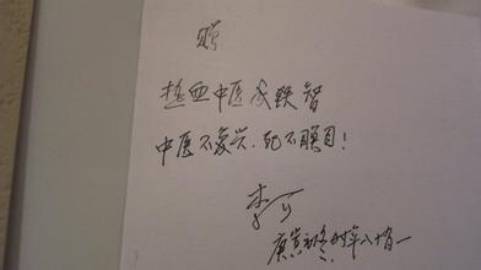 赠
热血中医成铁智
中医不复兴，死不瞑目！
李可
庚寅初冬时年八十有一